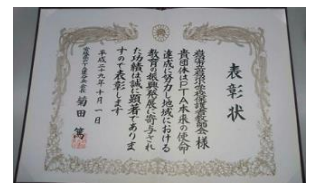 表彰状
様
貴団体はPTA本来の使命
達成に努力し地域における
教育の振興発展に寄与され
た功績は誠に顕著でありま
すので表彰します
平成二十九年十月一日
菊田 篤